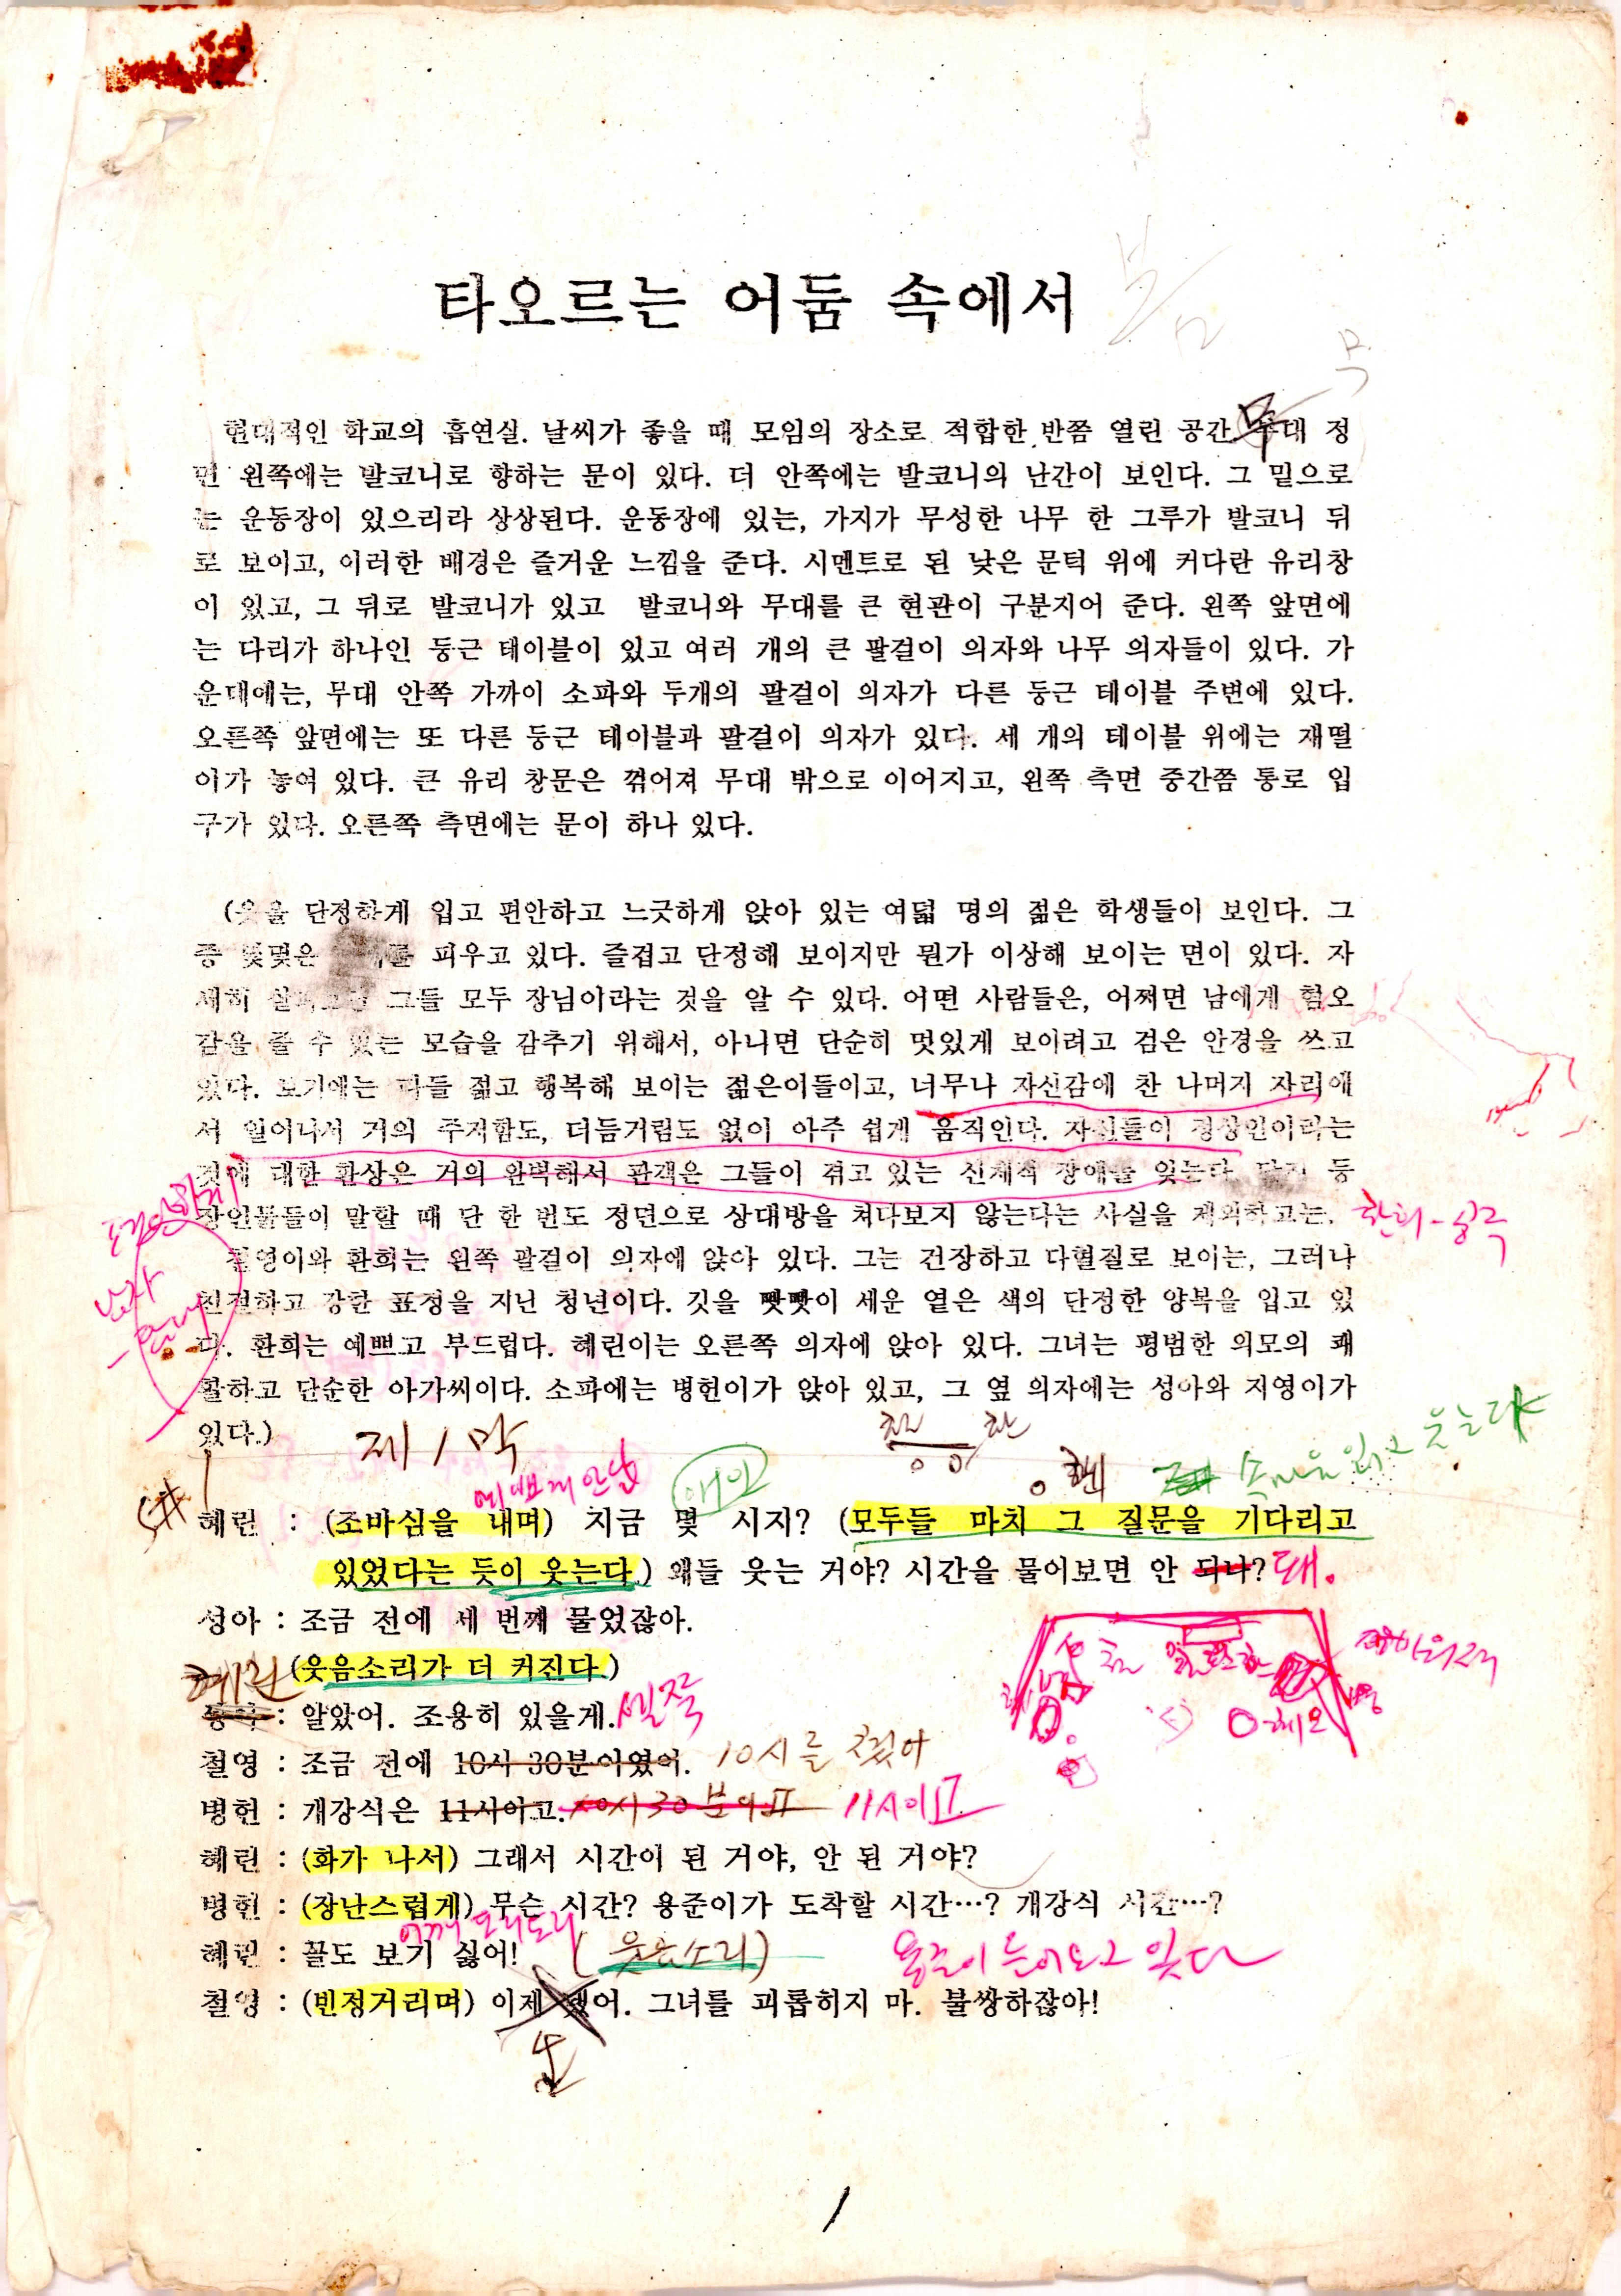 타오르는 어둠 속에서
봄
현대적인 학교의 흡연실. 날씨가 좋을 때 모임의 장소로 적합한 반쯤 열린 공간 무대 정
면 왼쪽에는 발코니로 향하는 문이 있다. 더 안쪽에는 발코니의 난간이 보인다. 그 밑으로
는 운동장이 있으리라 상상된다. 운동장에 있는, 가지가 무성한 나무 한 그루가 발코니 뒤
로 보이고, 이러한 배경은 즐거운 느낌을 준다. 시멘트로 된 낮은 문턱 위에 커다란 유리창
이 있고, 그 뒤로 발코니가 있고 발코니와 무대를 큰 현관이 구분지어 준다. 왼쪽 앞면에
는 다리가 하나인 둥근 테이블이 있고 여러 개의 큰 팔걸이 의자와 나무 의자들이 있다. 가
운데에는, 무대 안쪽 가까이 소파와 두개의 팔걸이 의자가 다른 둥근 테이블 주변에 있다.
오른쪽 앞면에는 또 다른 둥근 테이블과 팔걸이 의자가 있다. 세 개의 테이블 위에는 재떨
이가 놓여 있다. 큰 유리 창문은 꺾어져 무대 밖으로 이어지고, 왼쪽 측면 중간쯤 통로 입
구가 있다. 오른쪽 측면에는 문이 하나 있다.
(옷을 단정하게 입고 편안하고 느긋하게 앉아 있는 여덟 명의 젊은 학생들이 보인다. 그
중 몇몇은 피우고 있다. 즐겁고 단정해 보이지만 뭔가 이상해 보이는 면이 있다. 자
세히 그들 모두 장님이라는 것을 알 수 있다. 어떤 사람들은, 어쩌면 남에게 혐오
감을 줄 수 있는 모습을 감추기 위해서, 아니면 단순히 멋있게 보이려고 검은 안경을 쓰고
있다. 보기에는 다들 젊고 행복해 보이는 젊은이들이고, 너무나 자신감에 찬 나머지 자리에
서 일어나서 거의 주저함도, 더듬거림도 없이 아주 쉽게 움직인다. 자신들이 정상인이라는
것에 대한 환상은 거의 완벽해서 관객은 그들이 겪고 있는 신체적 장애를 잊는다. 등
장인물들이 말할 때 단 한 번도 정면으로 상대방을 쳐다보지 않는다는 사실을 제외하고는.
철영이와 환희는 왼쪽 팔걸이 의자에 앉아 있다. 그는 건장하고 다혈질로 보이는, 그러나
친절하고 강한 표정을 지닌 청년이다. 깃을 빳빳이 세운 옅은 색의 단정한 양복을 입고 있
다. 환희는 예쁘고 부드럽다. 혜린이는 오른쪽 의자에 앉아 있다. 그녀는 평범한 외모의 쾌
활하고 단순한 아가씨이다. 소파에는 병헌이가 앉아 있고, 그 옆 의자에는 성아와 지영이가
있다.)
제 1 막
예쁘게 안남
애인
혜린 : (조바심을 내며) 지금 몇 시지? (모두들 마치 그 질문을 기다리고
있었다는 듯이 웃는다.) 왜들 웃는 거야? 시간을 물어보면 안 되나? 돼.
성아 : 조금 전에 세 번째 물었잖아.
(웃음소리가 더 커진다.)
혜린 : 알았어. 조용히 있을게. 삐쭉
철영 : 조금 전에 10시 30분이였어. 10시를 쳤어
병헌 : 개강식은 11시이고. 10시 30분이고 11시이고
혜린 : (화가 나서) 그래서 시간이 된 거야, 안 된 거야?
병헌 : (장난스럽게) 무슨 시간? 용준이가 도착할 시간…? 개강식 시간…?
어깨 도리도리
혜린 : 꼴도 보기 싫어! (웃음소리) 용준이 들어오고 있다
철영 : (빈정거리며) 이제 어. 그녀를 괴롭히지 마. 불쌍하잖아!
1